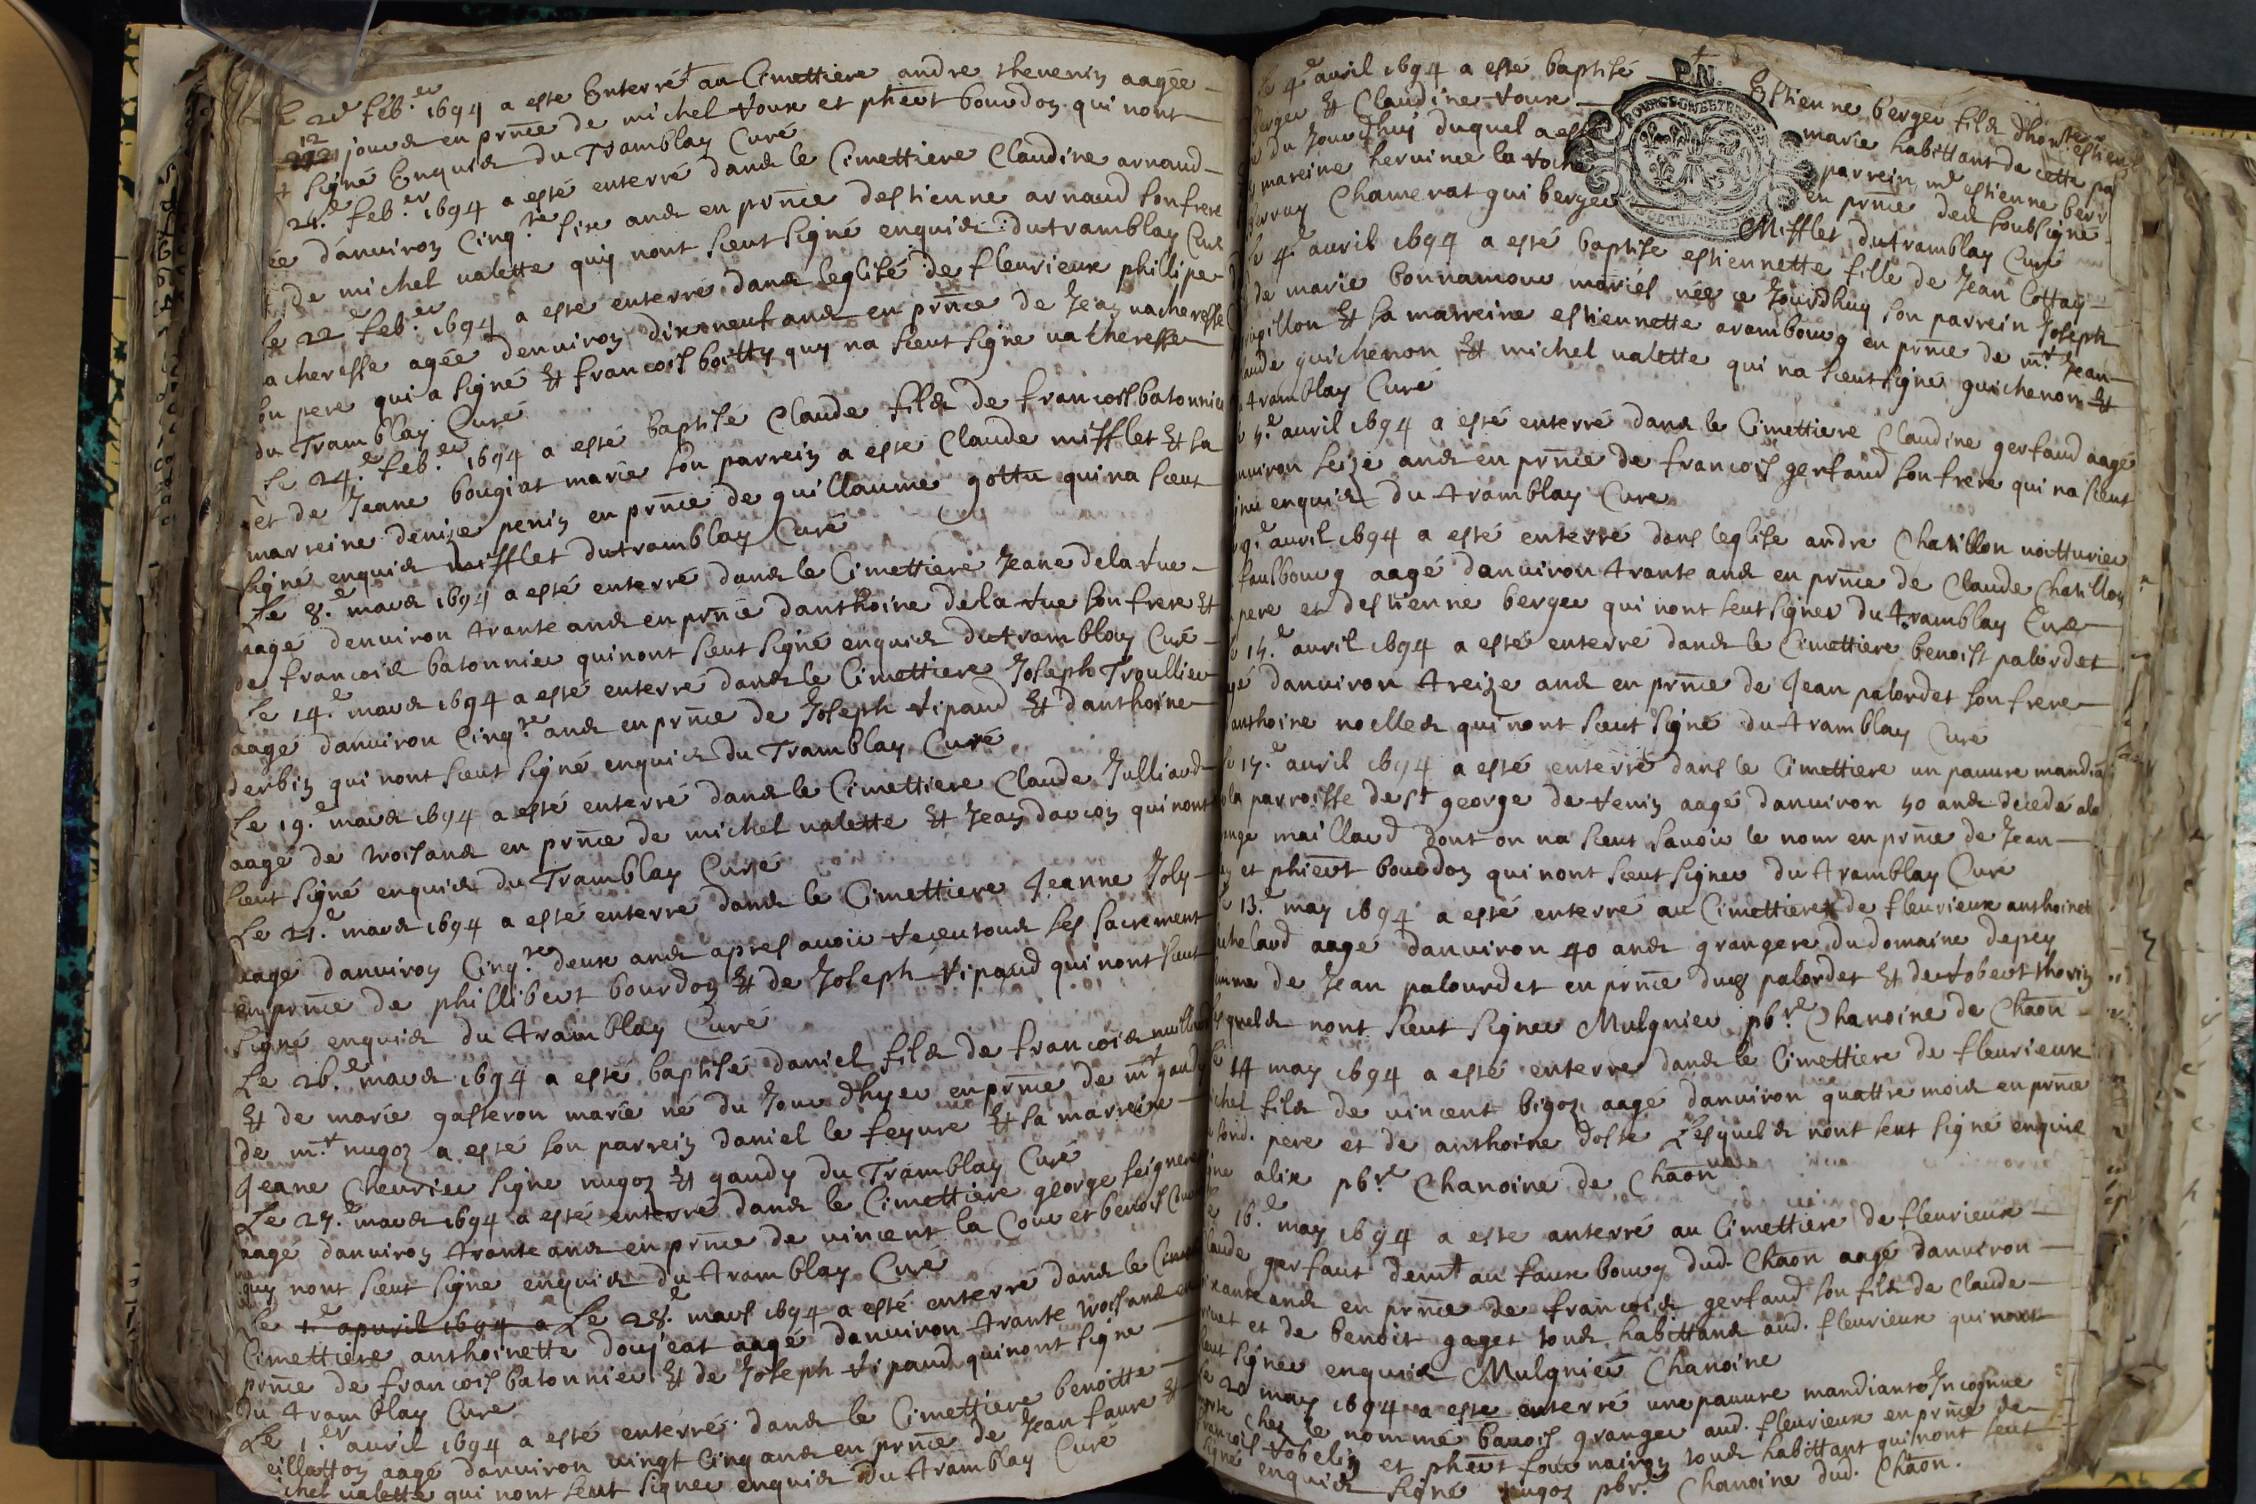 Le 20e feb.er 1694 a este Enterré au Cimettiere andre thevenin aagée
12 jours en prnce de michel Roux et phert bourdon qui nont
signé Enquis du Tramblay Curé
21.e feb.er 1694 a esté enterré dans le Cimettiere Claudine arnaud
d'anviron Cinq.te six ans en prnce destienne arnaud son frere
de michel valette quy nont sceut signé enquis dutramblay Curé
le 22e feb.er 1694 a esté enterré dans leglise de fleurieux phillipe
vacheresse agée denviron dixneuf ans en prnce de Jean vacheresse
son pere qui a signé Et francois boitty quy na sceut signe vacheresse
du Tramblay Curé
Le 24.e feb.er 1694 a esté baptisé Claude fils de francois batonnier
et de Jeane bougiat marie son parrein a este Claude mifflet Et sa
marreine denize penin en prnce de guillaume gottu qui na sceut
signé enquis mifflet dutramblay Curé
Le 8.e mars 1694 a esté enterré dans le Cimettiere Jeane delarue
aagé denviron trante ans en prnce danthoine delarue son frere Et
de francois batonnier qui nont sceut signé enquis dutramblay Curé
Le 14.e mars 1694 a esté enterré dans le Cimettiere Joseph Troullier
aagé danviron Cinq.te ans en prnce de Joseph ripaud Et danthoine
derbin qui nont sceut signé enquis du Tramblay Curé
Le 19.e mars 1694 a esté enterré dans le Cimettiere Claude Julliard
aagé de trois ans en prnce de michel valette Et Jean darcon qui nont
sceut signé enquis du Tramblay Curé
Le 21.e mars 1694 a esté enterré dans le Cimettiere Jeanne Joly
aagé danviron Cinq.te deux ans apres avoir receu tous les sacrement
en prnce de phillibert bourdon Et de Joseph ripaud qui nont sceut
signé enquis du tramblay Curé
Le 26.e mars 1694 a esté baptisé daniel fils de francois
Et de marie gasteron marie né du Jour dhyer en prnce de mr gaudy
de mr nugoz a esté son parrein daniel le feyure Et sa marreine
Jeane Chevrier signé nugoz Et gaudy du Tramblay Curé
Le 27.e mars 1694 a esté enterré dans le Cimettiere george seigneret
aagé danviron trante ans en prnce de vincent la Cour et benoist
quy nont sceut signe enquis du tramblay Curé
Le 1.e apuril 1694 a Le 28.e mars 1694 a esté enterré dans le
Cimettiere anthoinette doujeat aagé danviron trante trois ans en
prnce de francois batonnier Et de Joseph ripaud qui nont signe
du tramblay Cure
Le 1.er avril 1694 a esté enterré dans le Cimettiere benoitte
eillatton aagé danviron vingt Cinq ans en prnce de Jean faure Et
chel valette qui nont sceut signer enquis du tramblay Curé
le 4e avril 1694 a este baptisé Estienne berger fils dhonte estienne
berger Et Claudine Roux marie habittant de cette pa
du Jourdhuy duquel a esté parrein me estienne berr
mareine hervinee la en prnce des soubsigné
Perruy Chamerat gui berger Mifflet dutramblay Curé
le 4e avril 1694 a esté baptise estiennette fille de Jean Cottay
de marie bonnamour mariés née ce Jourdhuy son parrein Joseph
papillon Et sa marreine estiennette arambourg en prnce de mr Jean
aude guichenon Et michel valette qui na sceut signé guichenon Et
tramblay Curé
5.e avril 1694 a esté enterré dans le Cimettiere Claudine gerfaud aagé
nviron seize ans en prnce de francois gerfaud son frere qui na sceut
enquis du tramblay Cure
9.e avril 1694 a esté enterré dans leglise andre Chatillon voitturier
fausbourg aagé danviron trante ans en prnce de Claude Chatillon
pere et destienne berger qui nont seut signer du tramblay Cure
15.e avril 1694 a esté enterré dans le Cimettiere benoist palordet
danviron treize ans en prnce de Jean palordet son frere
anthoine noelles qui nont sceut signé du tramblay Cure
17.e avril 1694 a esté enterré dans le Cimettiere un pauvre mandia
la parroisse de st george de renin aagé danviron 50 ans décédé a la
grange maillard dont on na sceut savoir le nom en prnce de Jean
et phiert bourdon qui nont sceut signer du tramblay Curé
13.e may 1694 a esté enterré au Cimettiere de fleurieux anthoinet
chelard aagé danviron 40 ans grangere du domaine depey
femme de Jean palourdet en prnce dud palordet Et de robert thorin
lesquels nont sceut signer Mulgnier pbre Chanoine de Chaon
le 14 may 1694 a esté enterré dans le Cimettiere de fleurieux
chel fils de vincent bigon aagé danviron quattre mois en prnce
sond. pere et de anthoine doste Lesquels nont seut signé enquis
alix pbre Chanoine de Chaon
16.e may 1694 a este anterré au Cimettiere de fleurieux
laude gerfaut demt au faux bourg dud. Chaon aagé danviron
ixante ans en prnce de francois gerfaud son fils de Claude
et de benoit gaget tous habittans aud. fleurieux qui nont
sceut signer enquis Mulgnier Chanoine
le 20 may 1694 a este enterré une pauvre mandiante Incognue
morte chez le nommé banois granger aud. fleurieux en prnce de
francois robelin et phert fournairon tous habittant qui nont seut
signe enquis signé nugoz pbre Chanoine dud. Chaon.